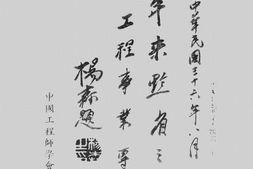 中華民國三十六年八月
年來黔省之
工程事業專
楊森題
中國工程師學會